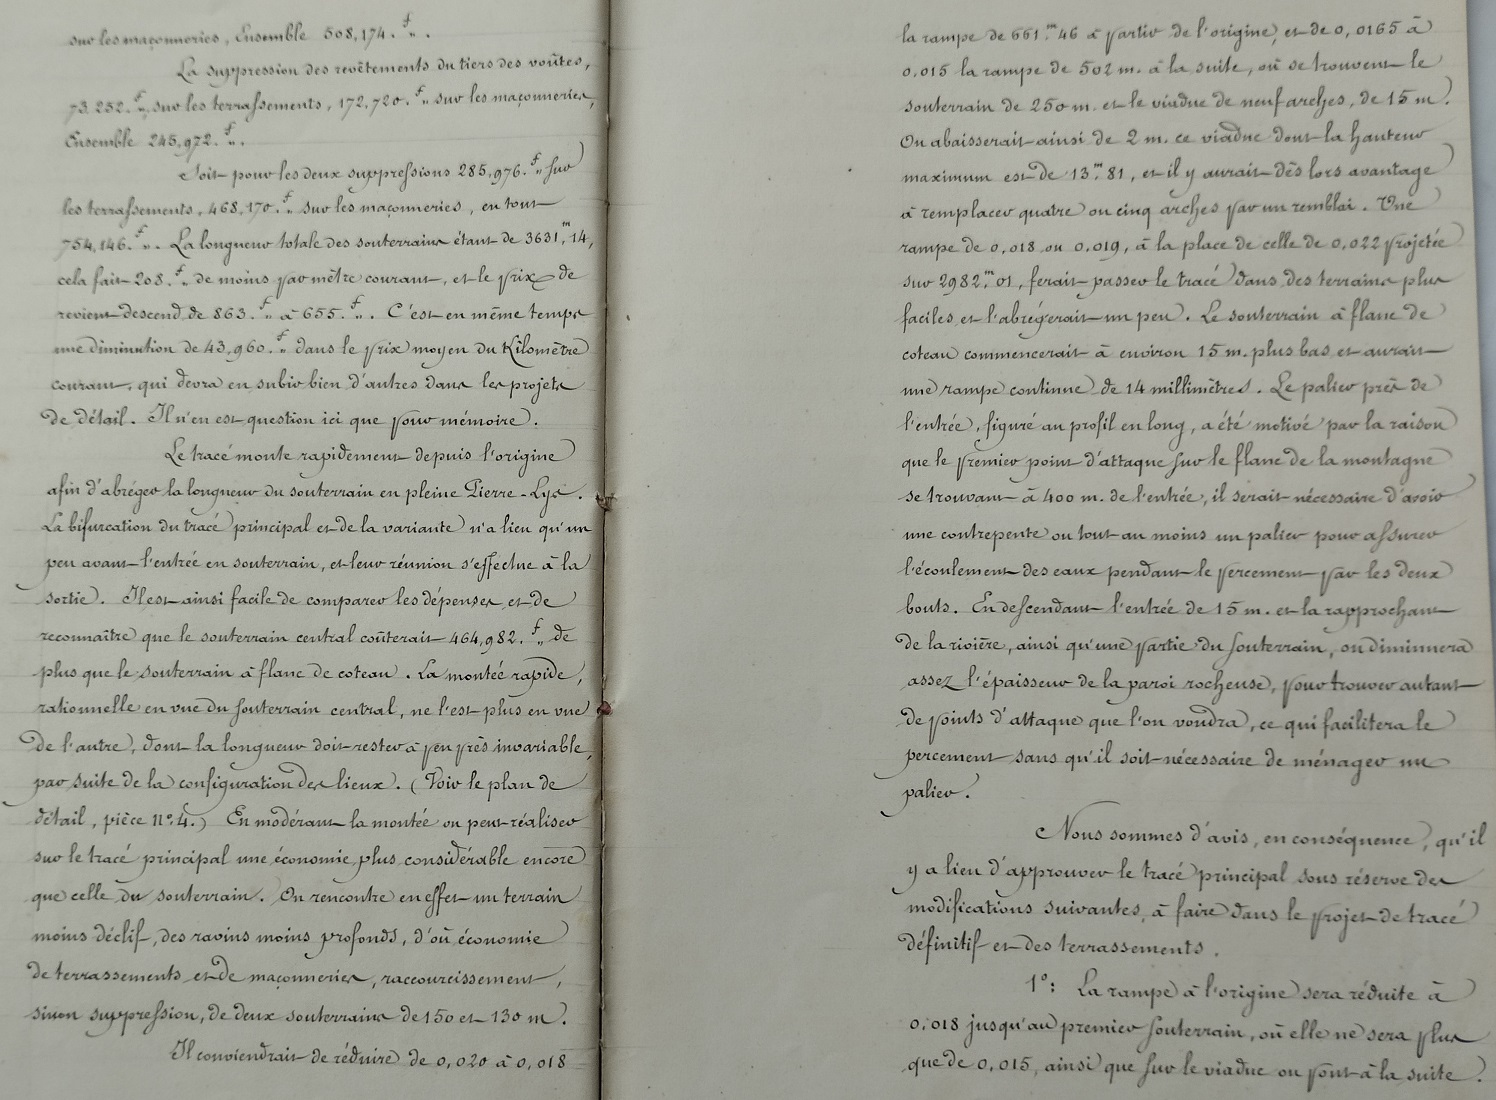 sur les maçonneries, Ensemble 508,174.f „ .
La suppression des revêtements du tiers des voûtes,
73.252.f „ sur les terrassements, 172,720.f „ sur les maçonneries,
Ensemble 245,972.f „ .
Soit pour les deux suppressions 285,976.f „ sur
les terrassements, 468,170.f „ sur les maçonneries, en tout
754,146.f „ . La longueur totale des souterrains étant de 3631,m14,
cela fait 208.f „ de moins par mètre courant, et le prix de
revient descend de 863.f „ à 655.f „ . C'est en même temps
une diminution de 43,960.f „ dans le prix moyen du Kilomètre
courant, qui devra en subir bien d'autres dans les projets
de détail. Il n'en est question ici que pour mémoire.
Le tracé monte rapidement depuis l'origine
afin d'abréger la longueur du souterrain en pleine Pierre-Lys.
La bifurcation du tracé principal et de la variante n'a lieu qu'un
peu avant l'entrée en souterrain, et leur réunion s'effectue à la
sortie. Il est ainsi facile de comparer les dépenses et de
reconnaître que le souterrain central coûterait 464,982.f „ de
plus que le souterrain à flanc de coteau. La montée rapide,
rationnelle en vue du souterrain central, ne l'est plus en vue
de l'autre, dont la longueur doit rester à peu près invariable,
par suite de la configuration des lieux. (Voir le plan de
détail, pièce n° 4.) En modérant la montée on peut réaliser
sur le tracé principal une économie plus considérable encore
que celle du souterrain. On rencontre en effet un terrain
moins déclif, des ravins moins profonds, d'où économie
de terrassements et de maçonneries, raccourcissement,
sinon suppression, de deux souterrains de 150 et 130 m.
Il conviendrait de réduire de 0,020 à 0,018
la rampe de 661,m46 à partir de l'origine, et de 0,0165 à
0.015 la rampe de 502 m. à la suite, où se trouvent le
souterrain de 250 m. et le viaduc de neuf arches, de 15 m.
On abaisserait ainsi de 2 m. ce viaduc dont la hauteur
maximum est de 13,m81, et il y aurait dès lors avantage
à remplacer quatre ou cinq arches par un remblai. Une
rampe de 0,018 ou 0.019, à la place de celle de 0,022 projetée
sur 2982,m01, ferait passer le tracé dans des terrains plus
faciles et l'abrégerait un peu. Le souterrain à flanc de
coteau commencerait à environ 15 m. plus bas et aurait
une rampe continue de 14 millimètres. Le palier près de
l'entrée, figuré au profil en long, a été motivé par la raison
que le premier point d'attaque sur le flanc de la montagne
se trouvant à 400 m. de l'entrée, il serait nécessaire d'avoir
une contrepente ou tout au moins un palier pour assurer
l'écoulement des eaux pendant le percement par les deux
bouts. En descendant l'entrée de 15 m. et la rapprochant
de la rivière, ainsi qu'une partie du souterrain, on diminuera
assez l'épaisseur de la paroi rocheuse, pour trouver autant
de points d'attaque que l'on voudra, ce qui facilitera le
percement sans qu'il soit nécessaire de ménager un
palier.
Nous sommes d'avis, en conséquence, qu'il
y a lieu d'approuver le tracé principal sous réserve des
modifications suivantes, à faire dans le projet de tracé
définitif et des terrassements.
1°: La rampe à l'origine sera réduite à
0,018 jusqu'au premier souterrain, où elle ne sera plus
que de 0,015, ainsi que sur le viaduc ou pont à la suite.